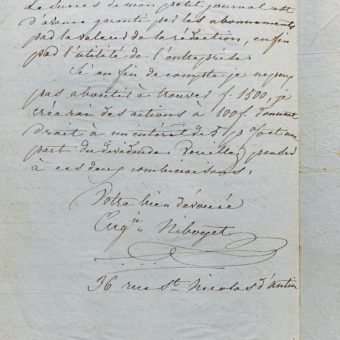 le succès de mon petit journal est
d'avance garanti par les abonnements
par la valeur de la rédaction, enfin
par l'utilité de l'entreprise.
Si en fin de compte je ne puis
pas aboutir à trouver f. 1500, je
créerai des actions à 100f. donnant
droit à un intérêt de 5 p % et une
part du dividende. Veuillez penser
à ces deux combinaisons.
Votre bien dévouée
Eugie Niboyet
36 rue St Nicolas d'antin